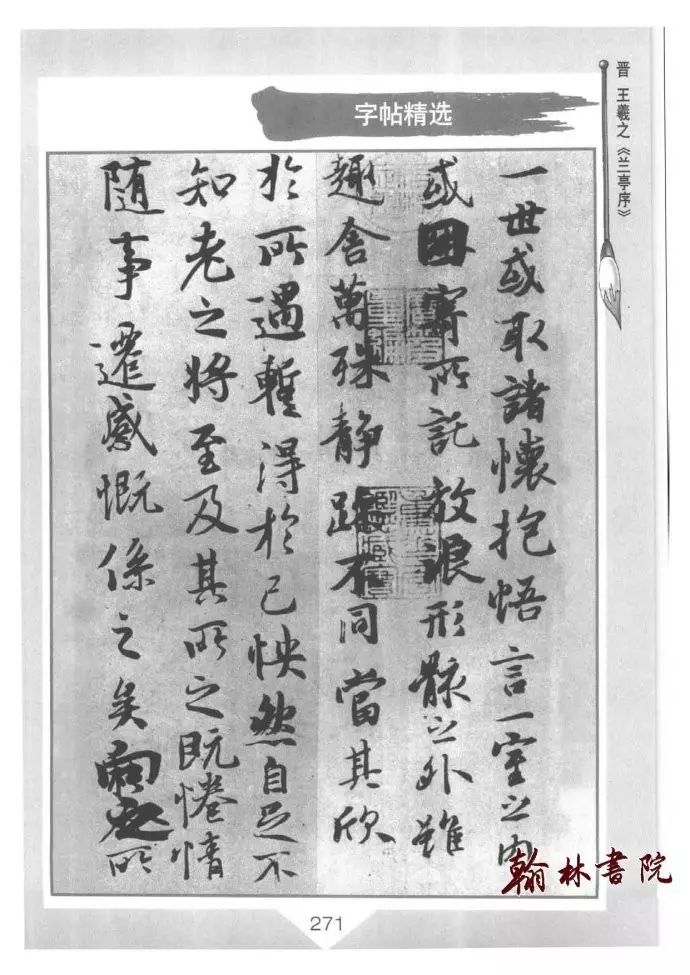 字帖精选
晋 王羲之《兰亭序》
一世或取諸懷抱悟言一室之內
或因寄所託放浪形骸之外雖
趣舍萬殊静躁不同當其欣
於所遇暫得於己怏然自足不
知老之將至及其所之既惓情
随事遷感慨係之矣向之所
271
翰林書院